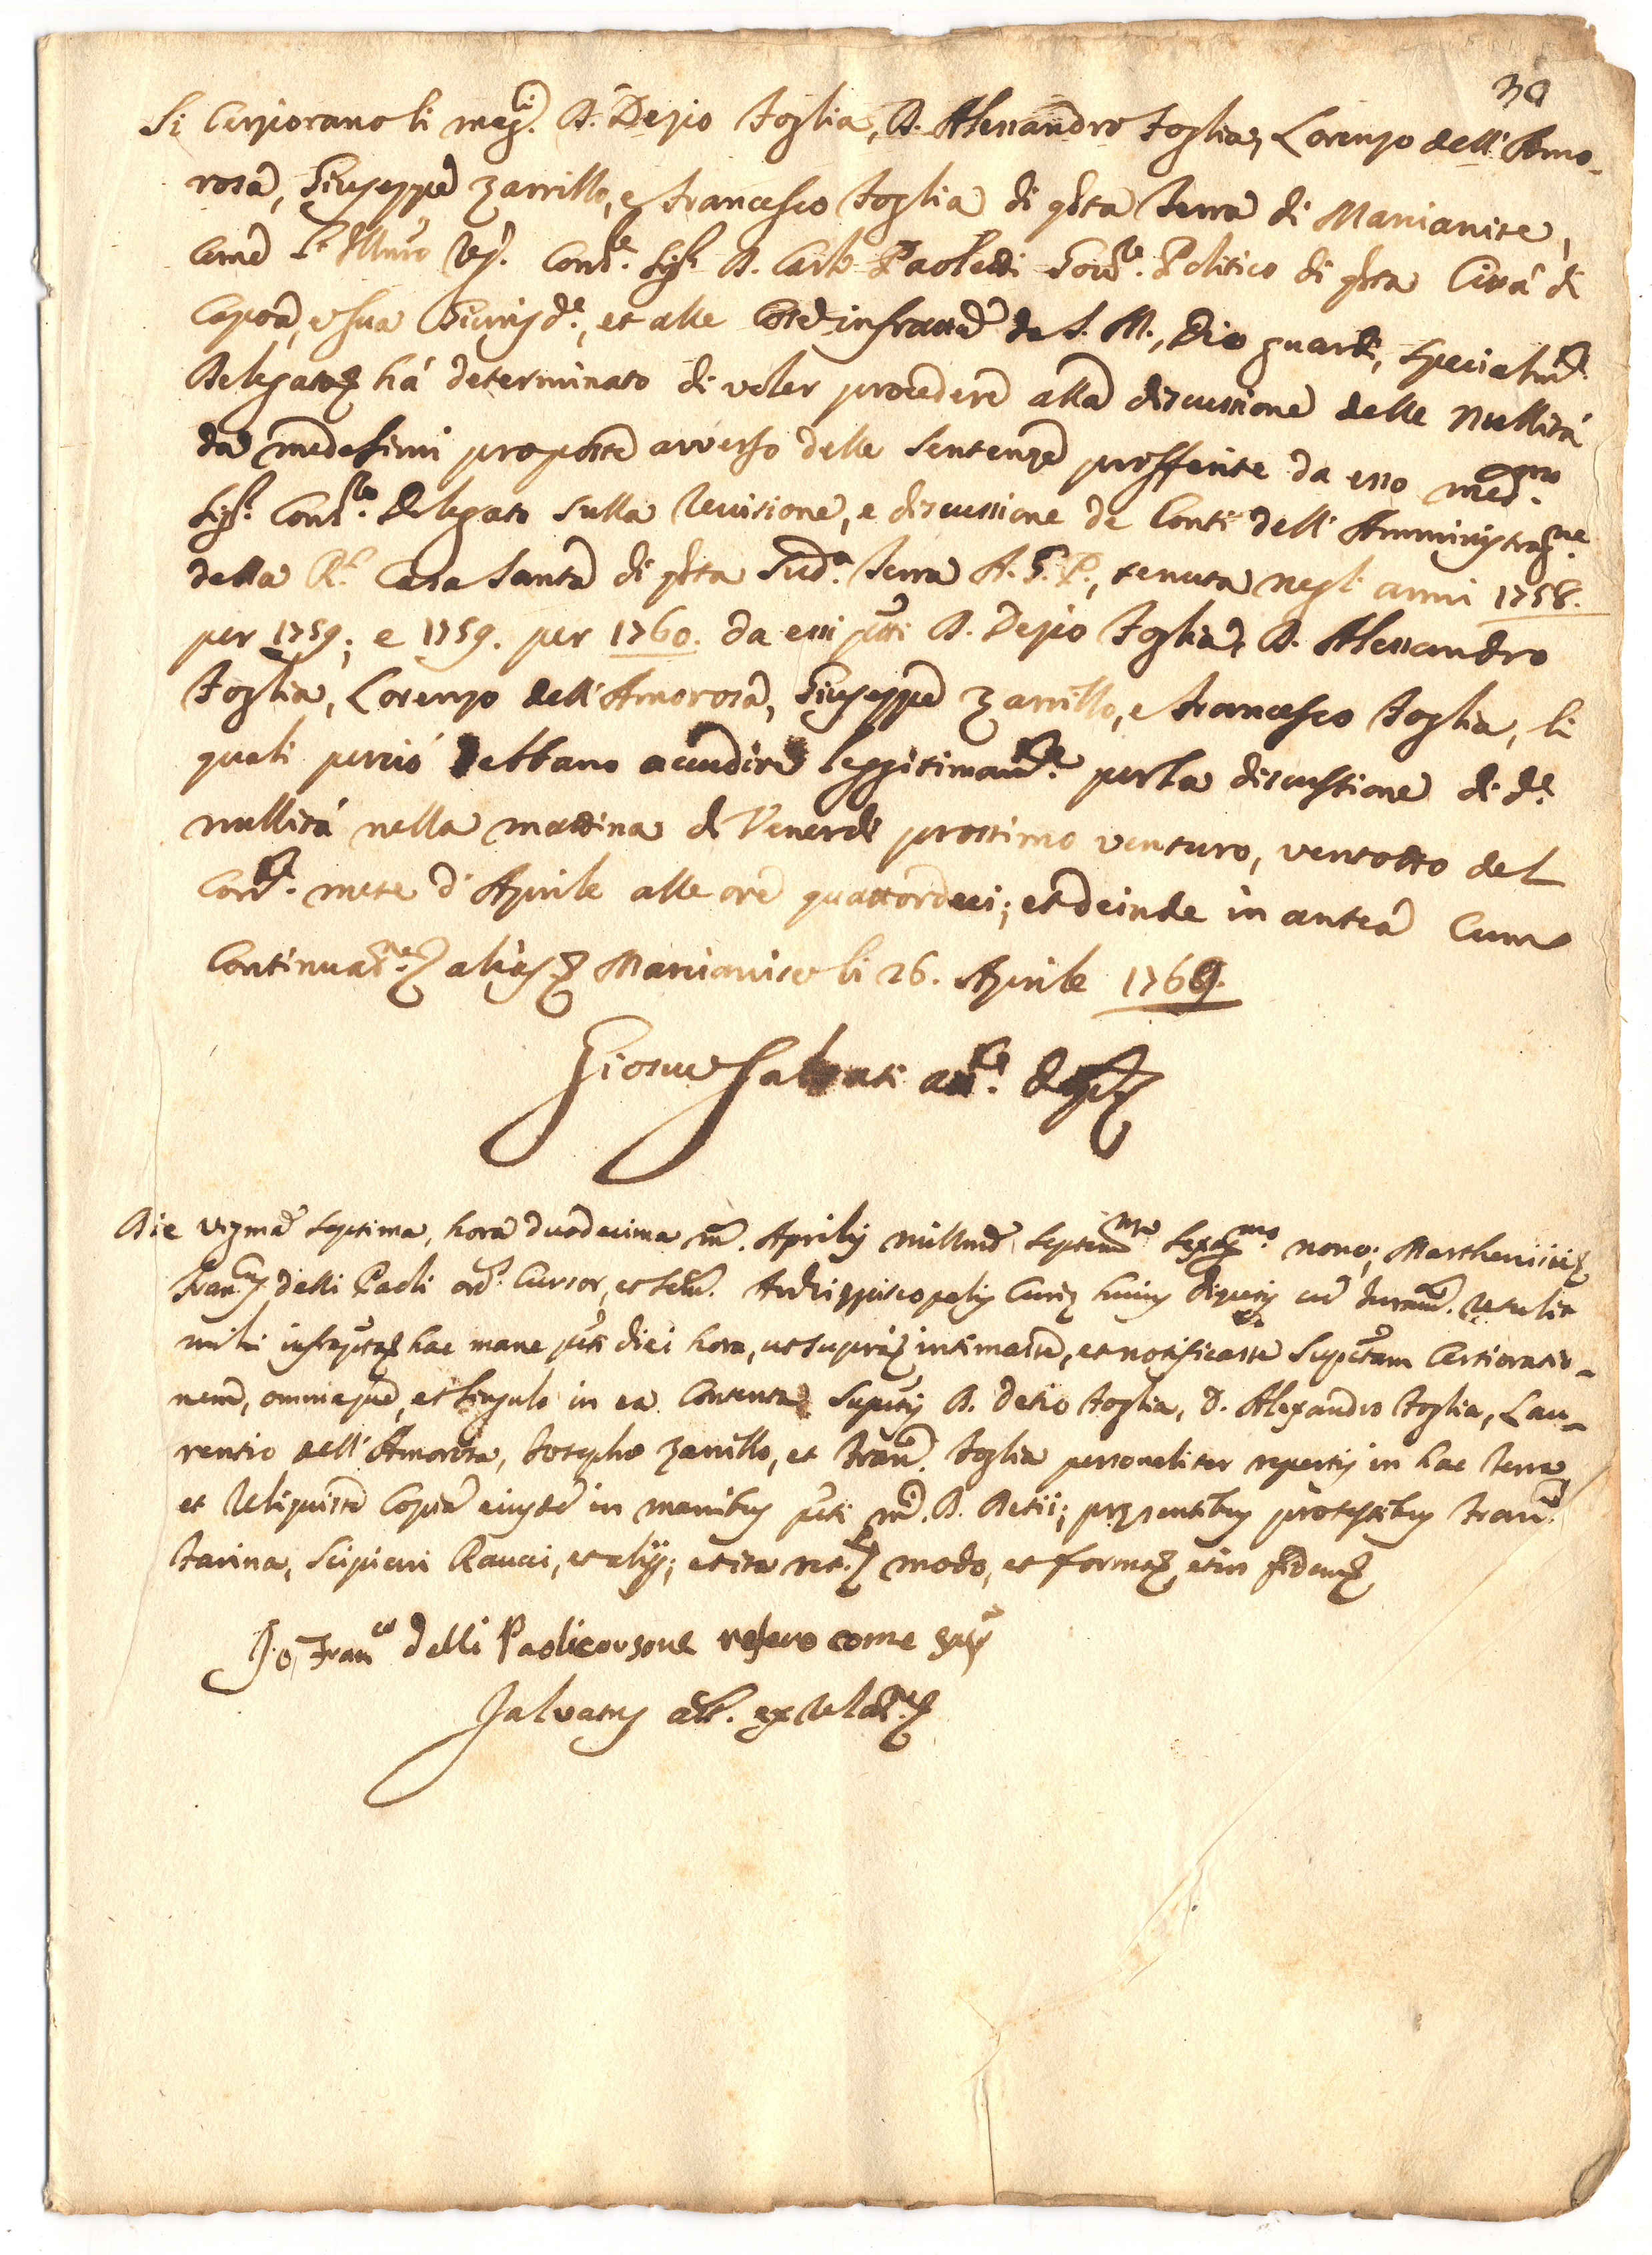 30
Si Cerziorano li mag.ci D. Dezio Foglia, D. Alessandro Foglia, Lorenzo dell'Amo-
rosa, Giuseppe Zarrillo, e Francesco Foglia di q̃sta Terra di Marcianise,
Come l'Ill͠mo Reg. Cons.re Sig.r D. Carlo Paoletti Gov.re Politico di q̃sta Città di
Capoa, e sua Giurisd.e, et alle Cose infratte da S. M., Dio guardi, specialm.te
Delegato, há determinato di voler procedere alla discussione delle Nullità
da medesimi proposte avverso delle Sentenze profferite da esso med.mo
Sig.r Cons.re Delegato sulla Revisione, e discussione de Conti dell'Amministraz.ne
della R.l Casa Santa di q̃sta Sud.a Terra A. G. P., tenuta negl'anni 1758.
per 1759; e 1759. per 1760. da essi p̃tti D. Dezio Foglia, D. Alessandro
Foglia, Lorenzo dell'Amorosa, Giuseppe Zarrillo, e Francesco Foglia, li
quali perciò debbano accudire leggitimam.te per la discussione di d.e
nullità nella mattina di Venerdì prossimo venturo, ventotto del
Corr.te mese d'Aprile alle ore quattordeci; et deinde in antea Cum
Continua.ne alias Marcianise li 26. Aprile 1769.
Giosue Salvati att.
Die vigma septima, hora duodecima m. Aprilis millmo septem.mo sexag.mo nono; Marthenisii
Fran.cus delli Paoli ord.s Cursor, et Archiepiscopalis Curie huius cum Juram. retulit
mihi infrapto hac mane p̃ti diei hora, ut supra intimasse, et notificasse Supttam Certioratio-
nem, omniaque, et singula in ea Contenta Suptis D. Detio Foglia, D. Alexandro Foglia, Lau-
rentio dell'Amorosa, Josepho Zarrillo, et Fran.co Foglia personaliter repertis in hac Terra
et reliquisse Copiam eiusdem in manibus p̃ti m.ci D. Detii; presentibus pro testibus Fran.co
Farina, Scipioni Raucci, et aliis; et ita ret. modo, et forma, et in fidem
Io Fran.co delli Paoli corsore refero come sopra
Salvatus act. ex rela.ne